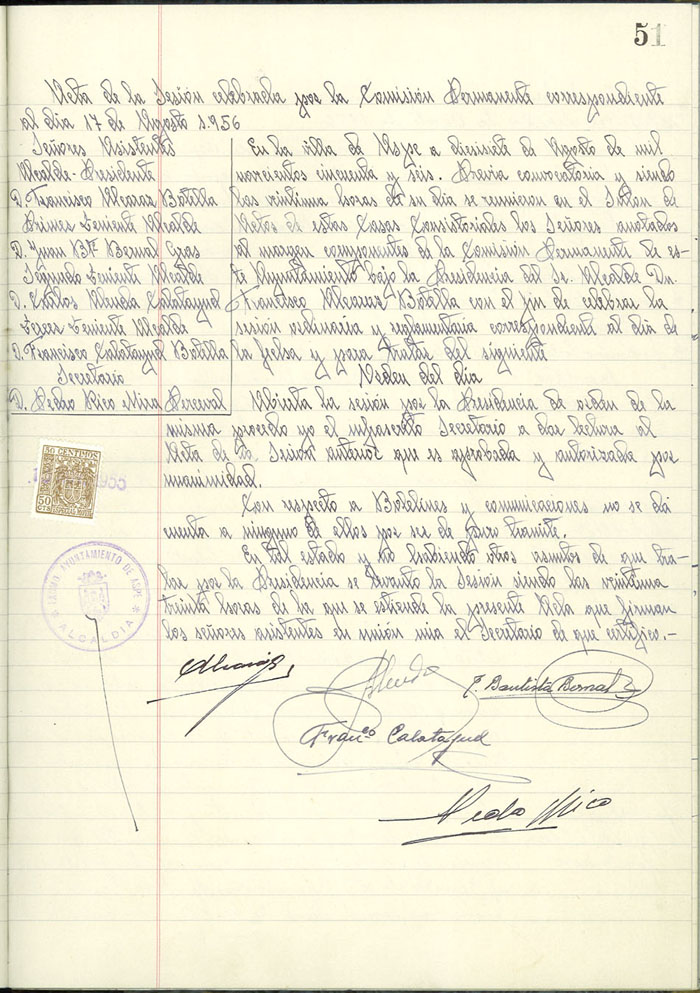 51
Acta de la Sesión celebrada por la Comisión Permanente correspondiente
al dia 17 de Agosto 1.956
Señores Asistentes
Alcalde-Presidente
D. Francisco Alcaraz Botella
Primer Teniente Alcalde
D. Juan Btª Bernal Eras
Segundo Teniente Alcalde
D. Carlos Calatayud
Tercer Teniente Alcalde
D. Francisco Calatayud Botella
Secretario
D. Pedro Rico Mira Perceval
En la villa de Aspe a diecisiete de Agosto de mil
novecientos cincuenta y seis. Previa convocatoria y siendo
las veintiuna horas de su dia se reunieron en el Salon de
Actos de estas Casas Consistoriales los Señores anotados
al margen componentes de la Comisión Permanente de es-
te Ayuntamiento bajo la Presidencia del Sr. Alcalde Dn.
Francisco Alcaraz Botella con el fin de celebrar la
sesión ordinaria y reglamentaria correspondiente al dia de
la fecha y para tratar del siguiente
Orden del dia
Abierta la sesión por la Presidencia de orden de la
misma procedo yo el infrascrito Secretario a dar lectura al
Acta de la Sesion anterior que es aprobada y autorizada por
unanimidad.
Con respecto a Boletines y comunicaciones no se dá
cuenta a ninguno de ellos por ser de puro tramite.
En tal estado y no habiendo otros asuntos de que tra-
tar por la Presidencia se levanto la Sesión siendo las veintiuna
treinta horas de la que se estiende la presente Acta que firman
los señores asistentes en unión mia el Secretario de que certifico.-
50 CENTIMOS
50
AYUNTAMIENTO DE ASPE
* ALCALDIA *
Alcaraz
J. Bautista Bernal
Franco Calatayud
Pedro Rico